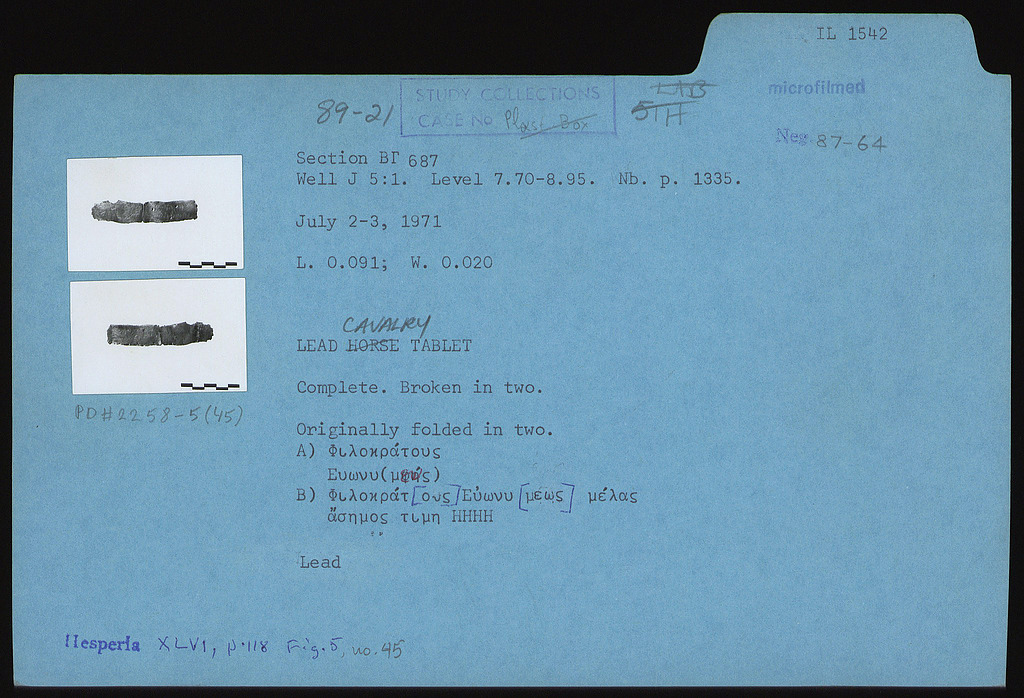 IL 1542
microfilmed
89-21
STUDY COLLECTIONS
CASE No Plast Box
LAB
5TH
Neg 87-64
Section ΒΓ 687
Well J 5:1. Level 7.70-8.95. Nb. p. 1335.
July 2-3, 1971
L. 0.091; W. 0.020
CAVALRY
LEAD HORSE TABLET
Complete. Broken in two.
PD#2258-5(45)
Originally folded in two.
A) Φιλοκράτους
Ευωνυ(μέως)
B) Φιλοκράτ[ους]Εὐωνυ[μέως] μέλας
ἄσημος τιμη ΗΗΗΗ
Lead
Hesperia XLVI, p.118 Fig.5, no.45